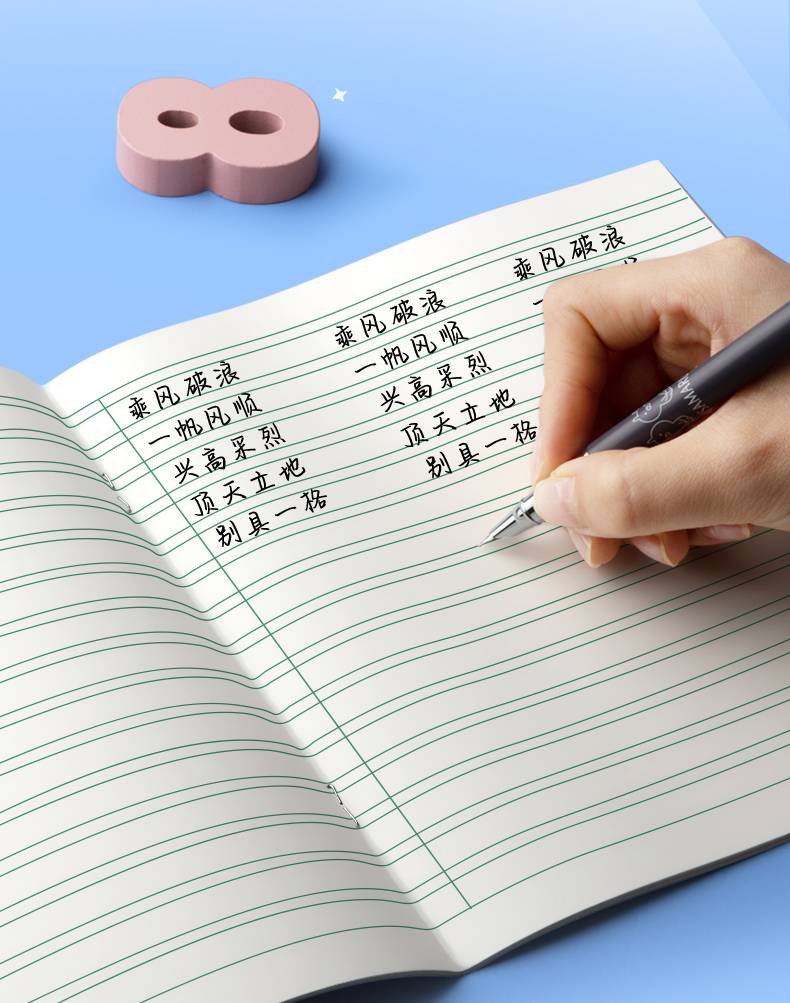 乘风破浪 乘风破浪 乘风破浪
一帆风顺 一帆风顺 一
兴高采烈 兴高采烈
顶天立地 顶天立地
别具一格 别具一格